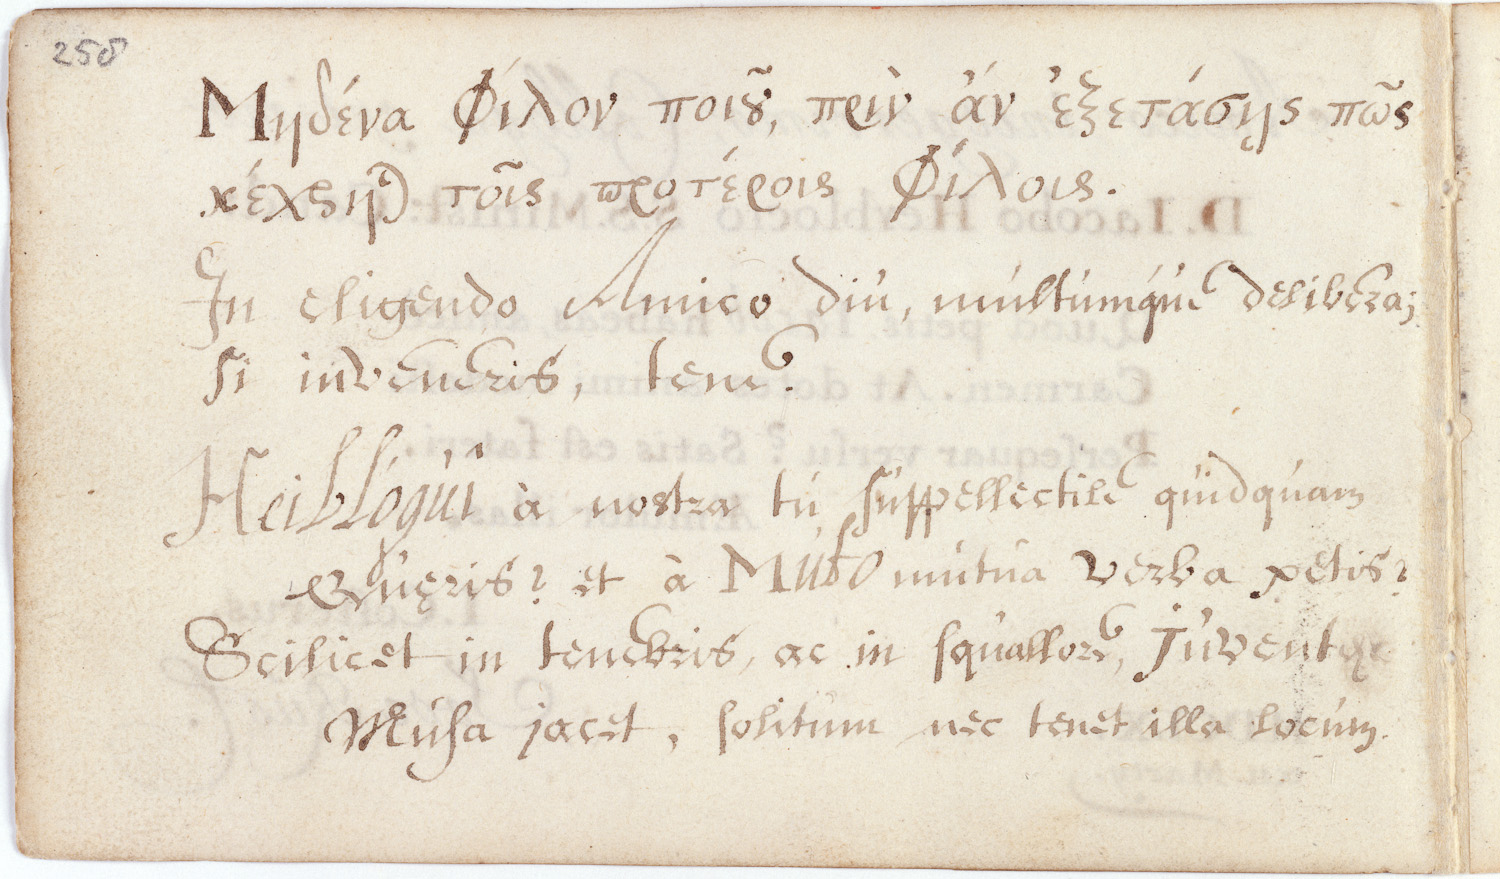 258
Μηδένα Φίλον ποιοῦ, πρὶν ἄν ἐξετάσῃς πῶς
κέχρηται τοῖς προτέροις Φίλοις.
In eligendo Amico diù, multumque delibera;
si inveneris, tene.
Heibloqui à nostra tu suppellectile quidquam
Quęris? et à Musto mutua verba petis?
Scilicet in tenebris, ac in squallore,
Musa jacet, solitum nec tenet illa locum.